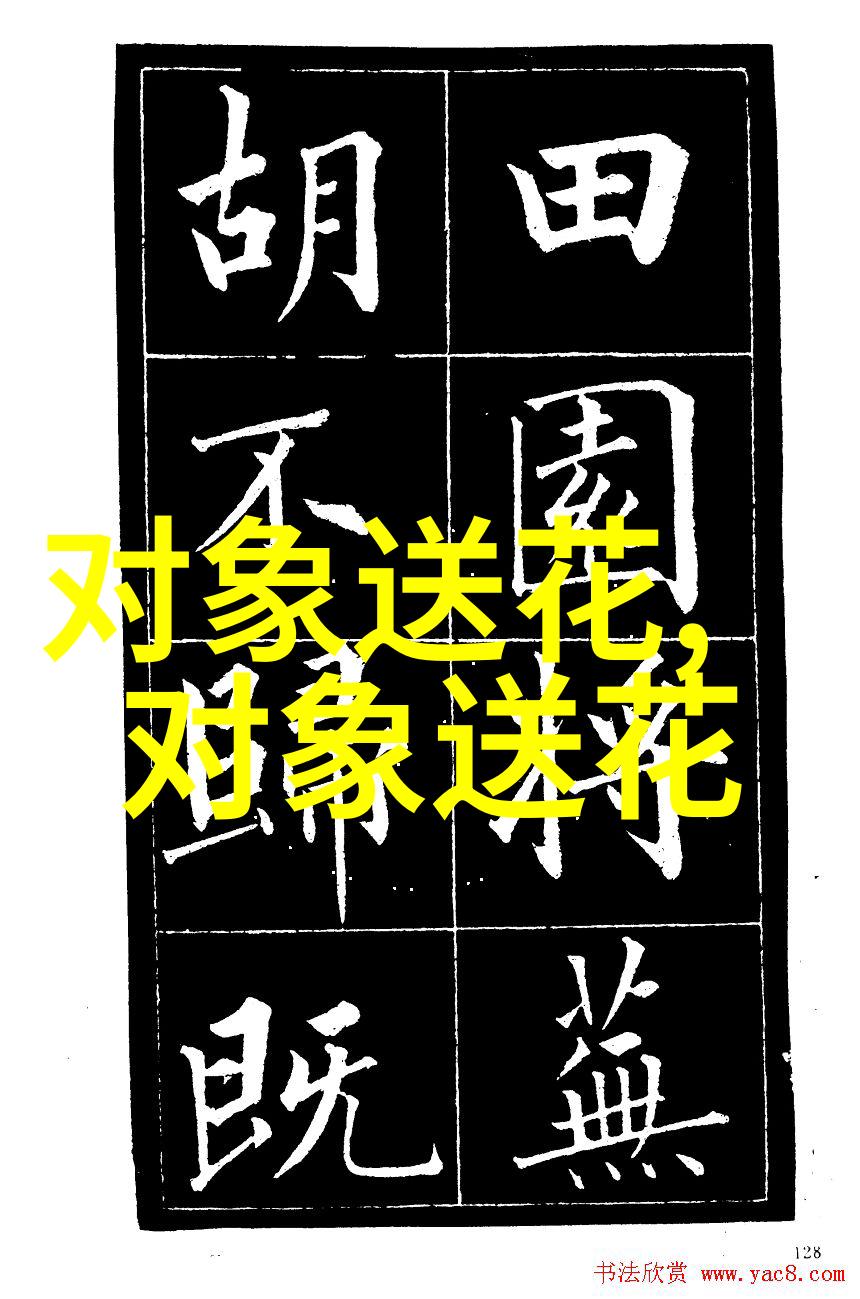 田園將蕪
胡不歸既
对象送花,
对象送花
128
书法欣赏 www.yac8.com